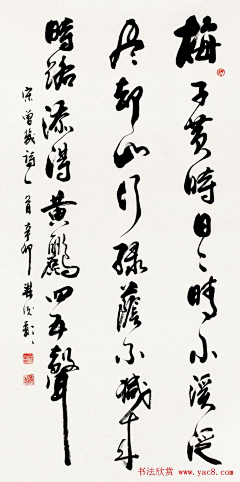 梅子黄時日々晴小溪泛
尽却山行緑蔭不減来
時路添得黄鸝四五聲
宋曾幾詩一首辛卯
书法欣赏
www.yac8.com